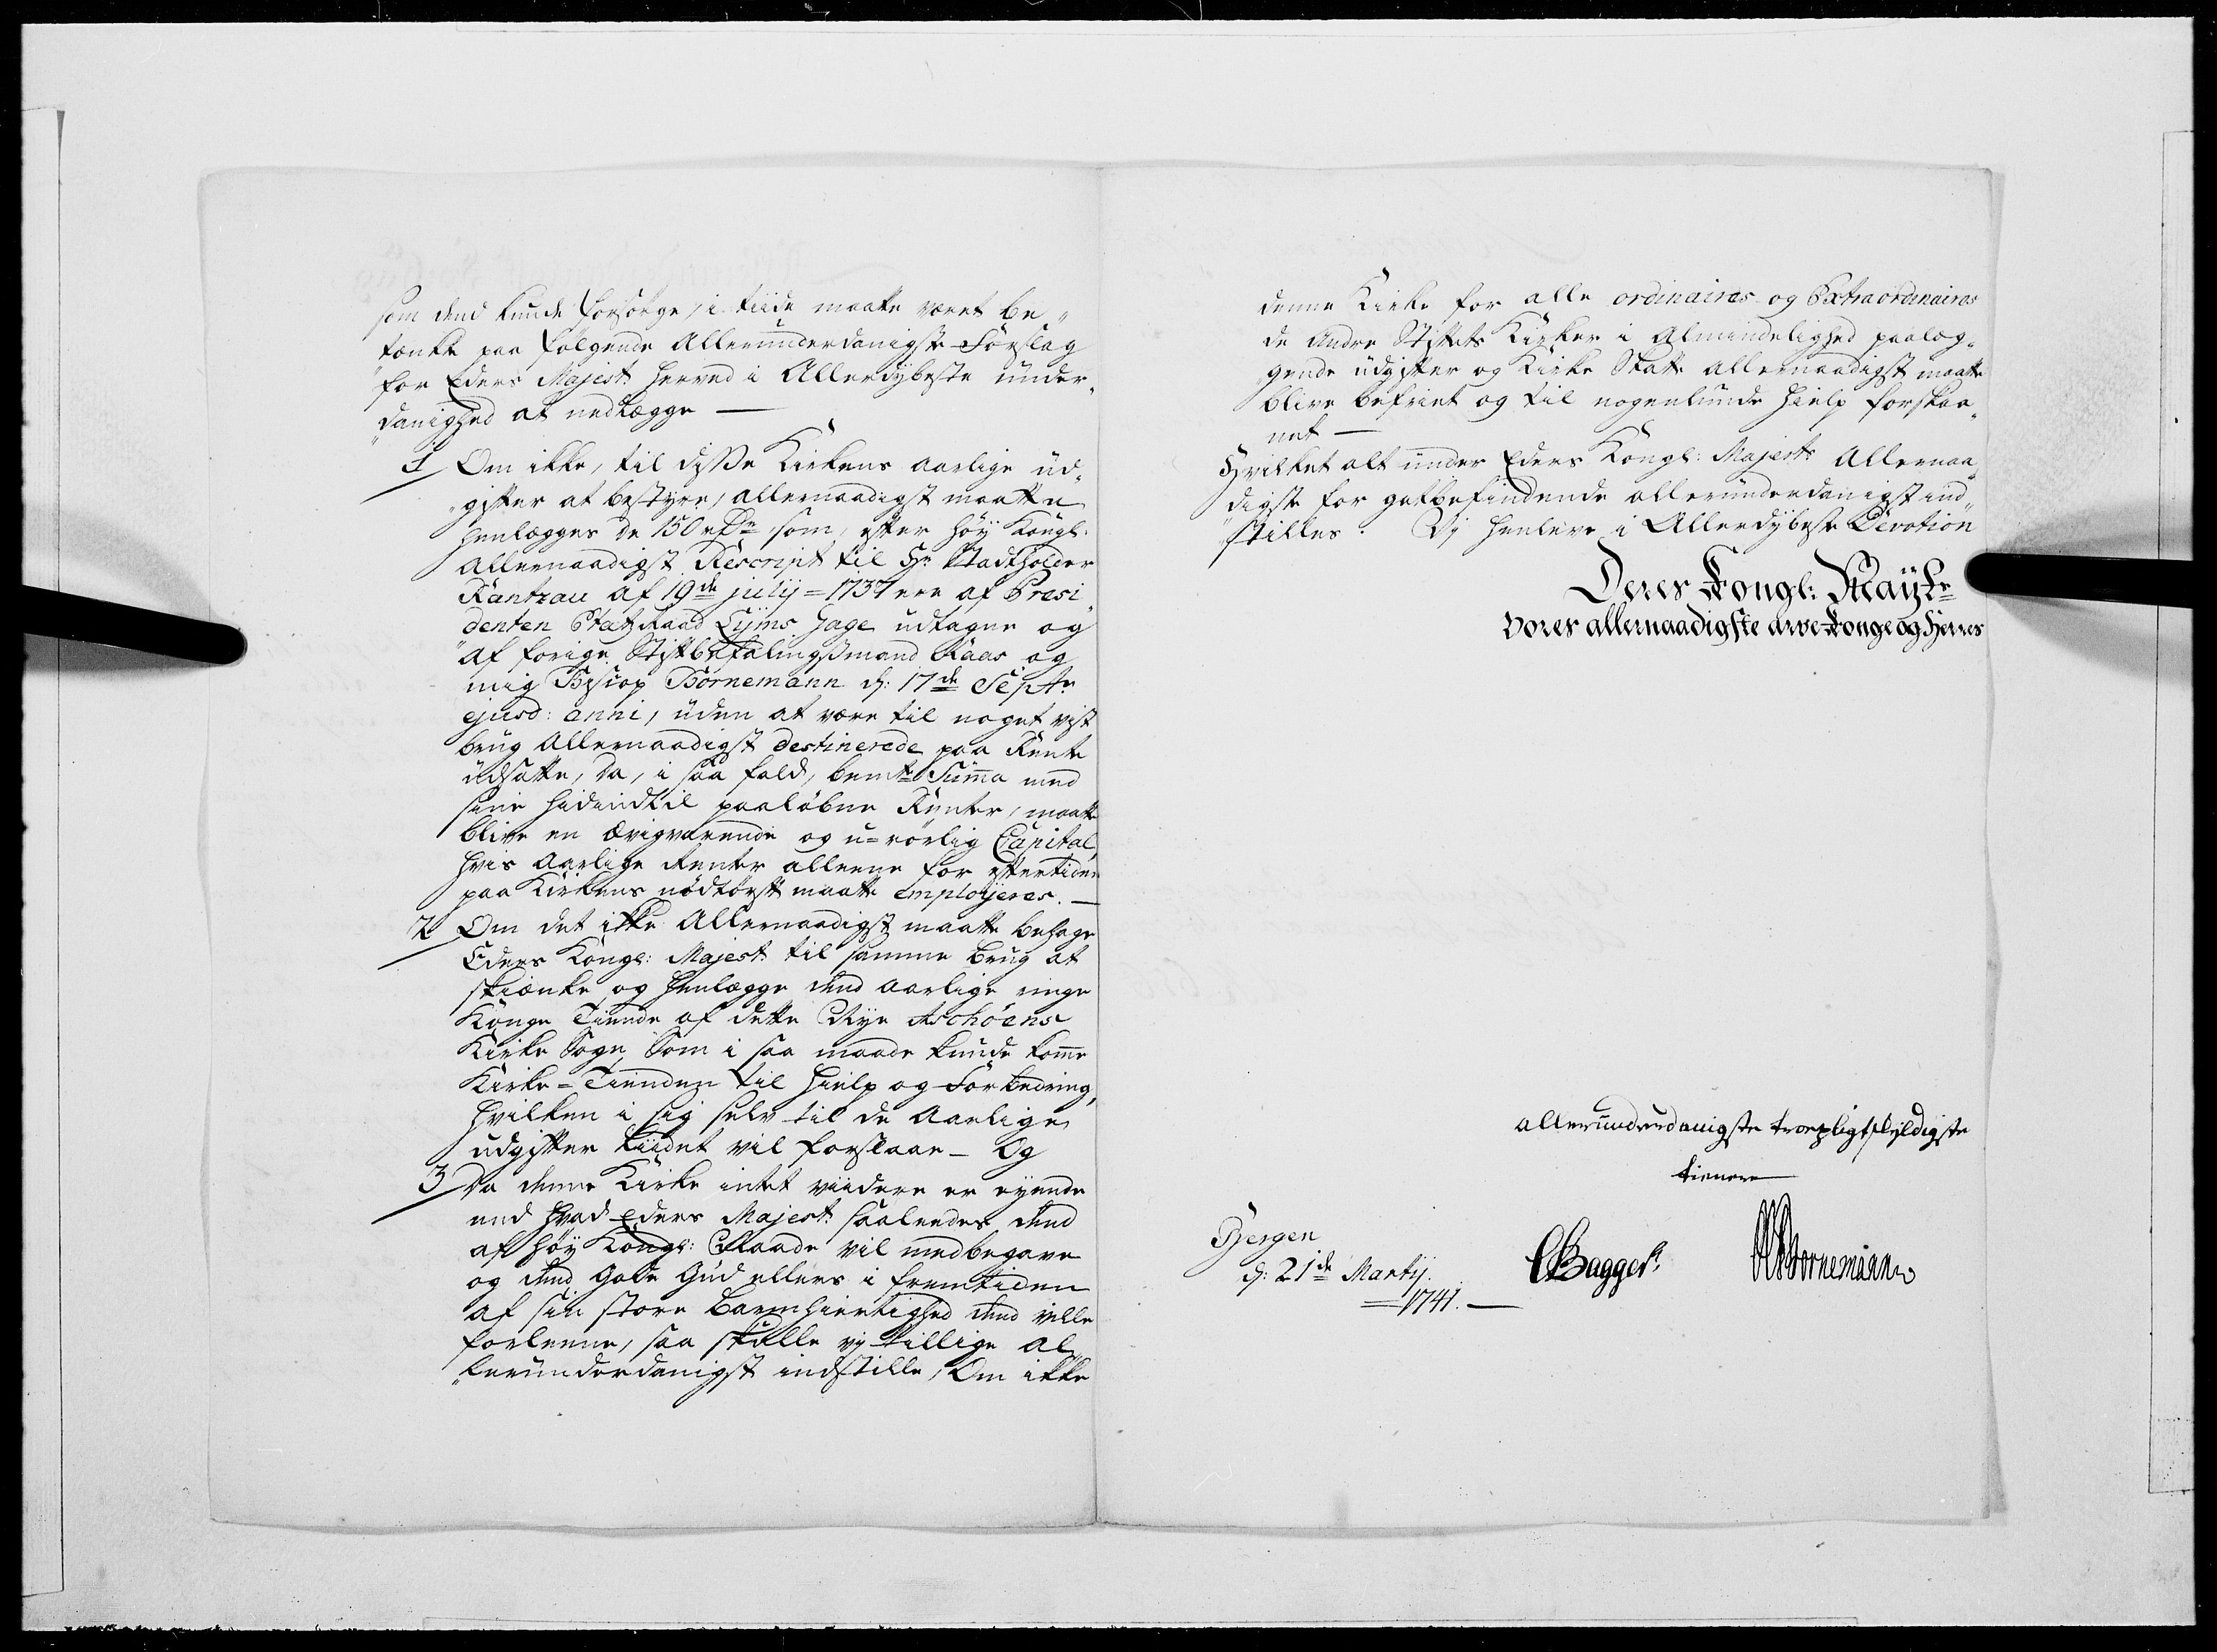 som dend kunde forsørge, i tiide maatte været be„
„tænkte paa følgende Allerunderdanigste Forslag
for Eders Majest: herved i Allerdybeste under„
„danighed at nedlægge —
1 Om ikke, til dysse Kirkens aarlige ud„
„gifter at bestyre, allernaadigst maatte
henlægges de 150 rdr som, efter høy Kongl:
Allernaadigst Rescript til Hr Stadtholder
Rantzau af 19de julij = 1737 ere af Præsi„
„denten Etatz Raad Lyms Hage udtagne og
af forige Stiftbefalingsmand Kaas og
mig Biscop Bornemann d: 17de Septr
ejusd: anni, uden at være til noget vist
brug Allernaadigst destinerede paa Rente
udsatte, da, i saa fald, bemte Suma med
sine hidindtil paaløbne Rynter, maatte
blive en ævigvarende og u=rørlig Capital,
hvis aarlige Renter alleene for eftertiden
paa Kirkens nødtørft maatte employeres. —
2 Om det ikke Allernaadigst maatte behage
Eders Kongl: Majest: til samme brug at
skiænke og henlægge dend aarlige ringe
Konge Tiende af dette Nye Aschøens
Kirke Sogn, Som i saa maade kunde kome
Kirke=Tienden til hielp og Forbedring,
hvilken i sig selv til de Aarlige
udgifter liidet vil forslaae — Og
3 Da denne Kirke intet viidere er eyende
end hvad Eders Majest: saaleedes dend
af høy Kongl: Naade vil medbegave
og dend Gode Gud ellers i fremtiden
af sin store barmhiertighed dend ville
forleene, saa skulle vj tillige al„
„lerunderdanigst indstille, Om ikke
denne Kirke for alle ordinaires og Extraordinaires
de andre Stiftets Kirker i Almindelighed paalæg„
„gende udgifter og Kirke Skatte allernaadigst maatte
blive befriet og til nogenlunde hielp forskaa„
net —
Hvilket alt under Eders Kongl: Majests Allernaa„
„digste for gotbefindende allerunderdanigst ind„
„stilles. Vj henleve i Allerdybeste Devotion
Deres Kongl: Mayts
vores allernaadigste arve-Konge og Herres
allerunderdanigste troepligtskyldigste
tienere
Bergen
d: 21de Martij.
=1741. —
CBagger. Bornemann